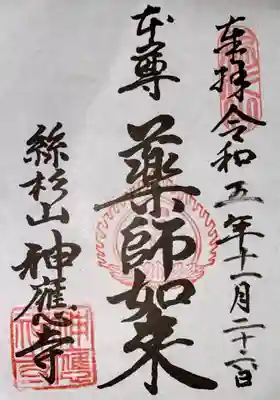 奉拝 令和五年十一月二十六日
本尊
薬師如来
絲杉山 神應寺